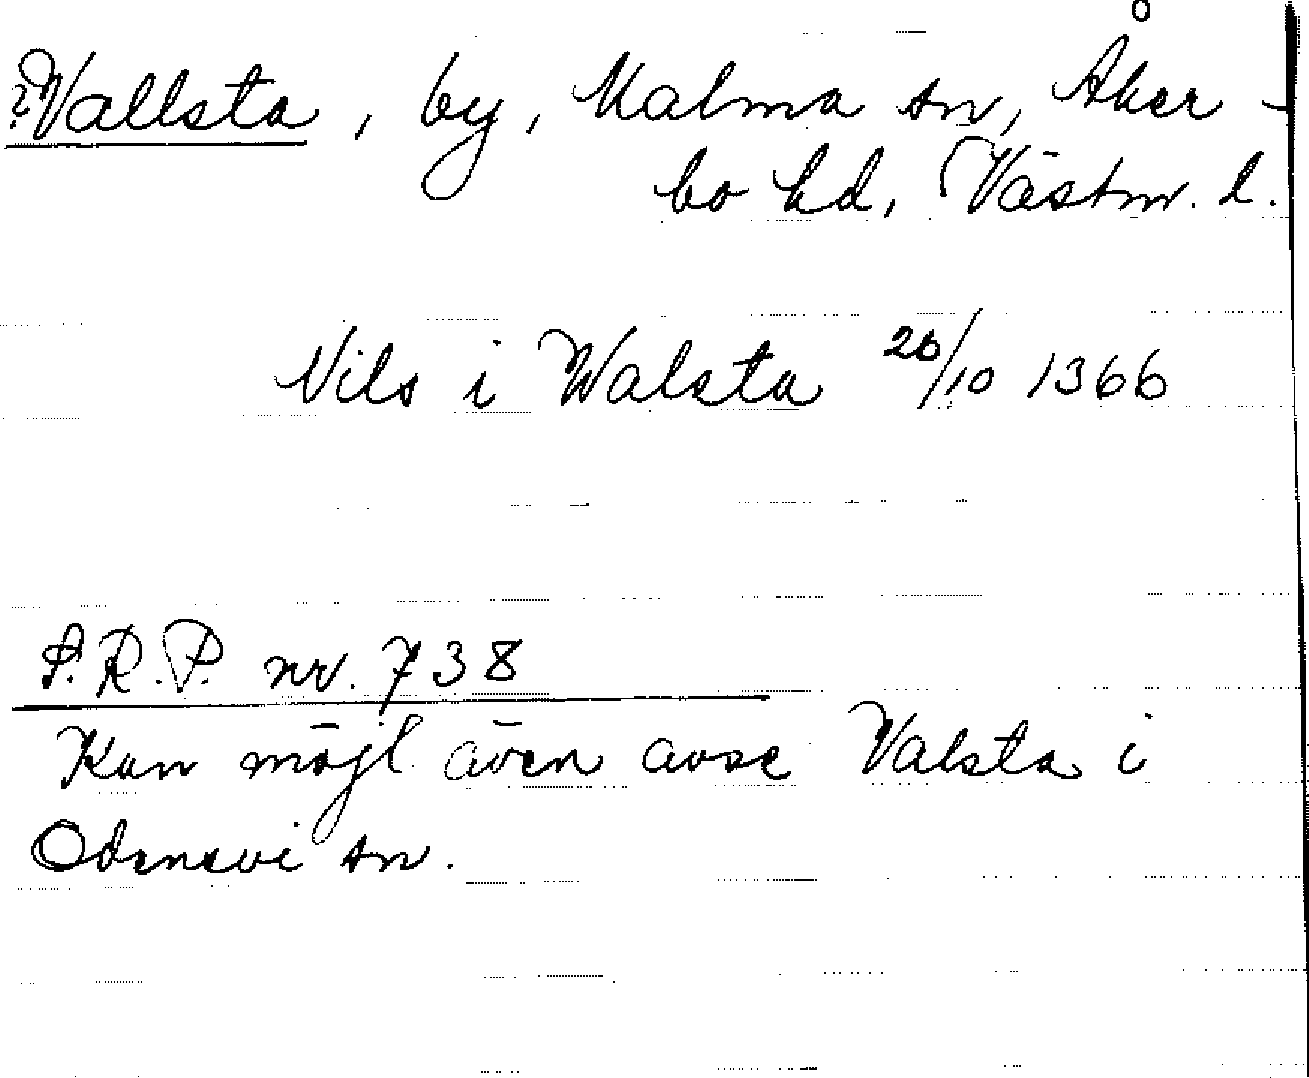 ?Vallsta, by, Malma sn, Åker-
bo hd, Västm. l.
Nils i Walsta 26/10 1366
S.R.P. nr. 738
Kan möjl. även avse Valsta i
Odensvi sn.